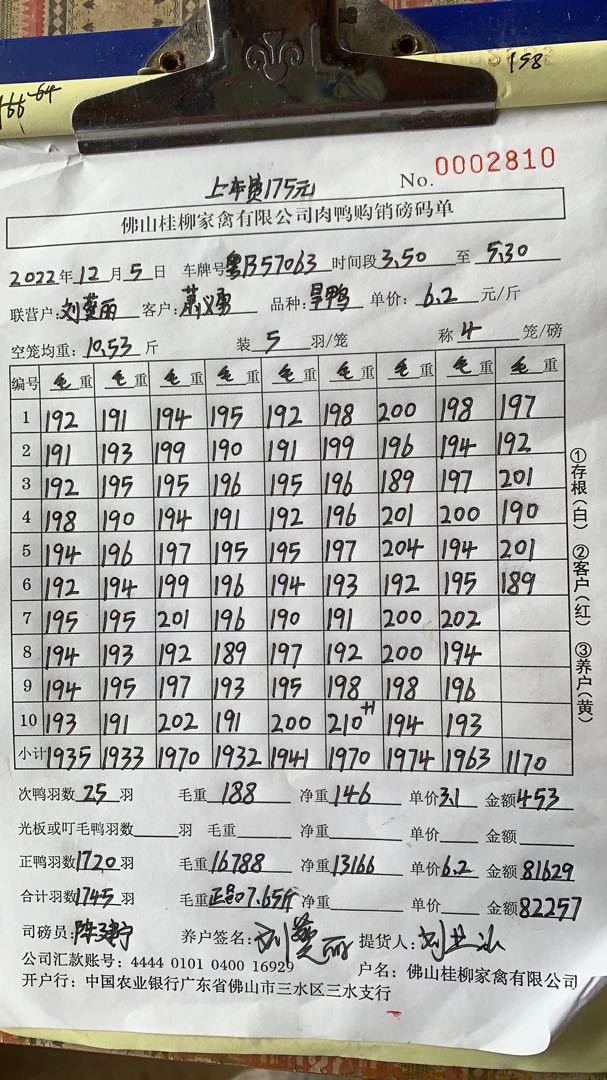 198
166 64
No. 0002810
上车费175元
佛山桂柳家禽有限公司肉鸭购销磅码单
2022年12月5日 车牌号粤B57063 时间段3.50至5.30
联营户:刘蔓丽 客户:萧义勇 品种:旱鸭 单价:6.2元/斤
空笼均重:10.53斤 装5羽/笼 称4笼/磅
编号 毛重 毛重 毛重 毛重 毛重 毛重 毛重 毛重 毛重
1 192 191 194 195 192 198 200 198 197
2 191 193 199 190 191 199 196 194 192
3 192 195 195 196 195 196 189 197 201
4 198 190 194 191 192 196 201 200 190
5 194 196 197 195 195 197 204 194 201
6 192 194 199 196 194 193 192 195 189
7 195 195 201 196 190 191 200 202
8 194 193 192 189 197 192 200 194
9 194 195 197 193 195 198 198 196
10 193 191 202 191 200 210+1 194 193
小计 1935 1933 1970 1932 1941 1970 1974 1963 1170
①存根(白) ②客户(红) ③养户(黄)
次鸭羽数25羽 毛重188 净重146 单价3.1 金额453
光板或叮毛鸭羽数 羽 毛重 净重 单价 金额
正鸭羽数1720羽 毛重16788 净重13166 单价6.2 金额81629
合计羽数1745羽 毛重正品7.65斤 净重 单价 金额82257
司磅员:陈建宁 养户签名:刘蔓丽 提货人:
公司汇款账号:4444 0101 0400 16929 户名:佛山桂柳家禽有限公司
开户行:中国农业银行广东省佛山市三水区三水支行